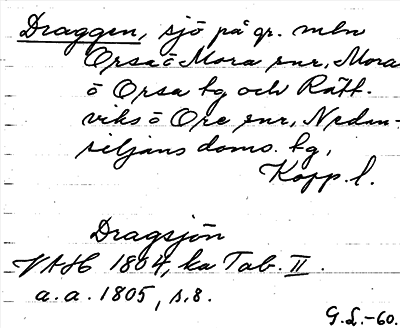 Draggen, sjö på gr. mln
Orsa o Mora snr, Mora
o Orsa tg och Rätt-
viks o Ore snr, Nedan-
siljans doms. tg,
Kopp. l.
Dragsjön
VAH 1804, ka Tab. II.
a.a. 1805, s. 8.
G.L.-60.